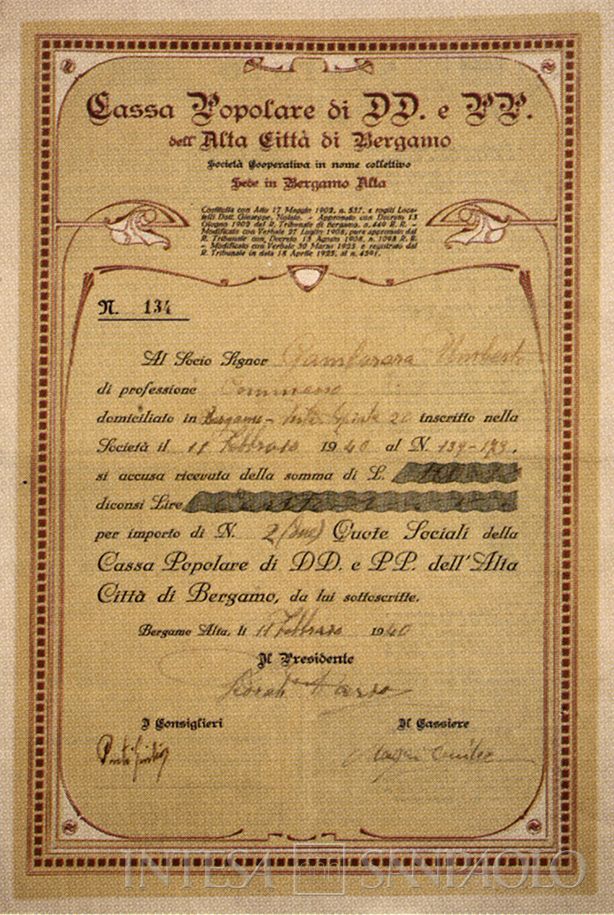 Cassa Popolare di DD. e PP.
dell'Alta Città di Bergamo
Società Cooperativa in nome collettivo
Sede in Bergamo Alta
Costituita con Atto 17 Maggio 1902, n. 537, a rogiti Loca-
telli Dott. Giuseppe, Notaio. - Approvato con Decreto 13
Giugno 1902 del R. Tribunale di Bergamo, n. 449 R. R. -
Modificato con Verbale 27 Luglio 1908, pure approvato dal
R. Tribunale con Decreto 13 Agosto 1908, n. 1098 R. R.
- Modificato con Verbale 30 Marzo 1925 e registrato dal
R. Tribunale in data 18 Aprile 1925, al n. 4591.
N. 134
Al Socio Signor Gambarara Umberto
di professione
domiciliato in Bergamo - 20 inscritto nella
Società il 11 Febbraio 1940 al N. 139-179,
si accusa ricevuta della somma di L.
diconsi Lire
per importo di N. 2 (due) Quote Sociali della
Cassa Popolare di DD. e PP. dell'Alta
Città di Bergamo, da lui sottoscritte.
Bergamo Alta, li 11 Febbraio 1940
Il Presidente
I Consiglieri
Il Cassiere
INTESA SANPAOLO